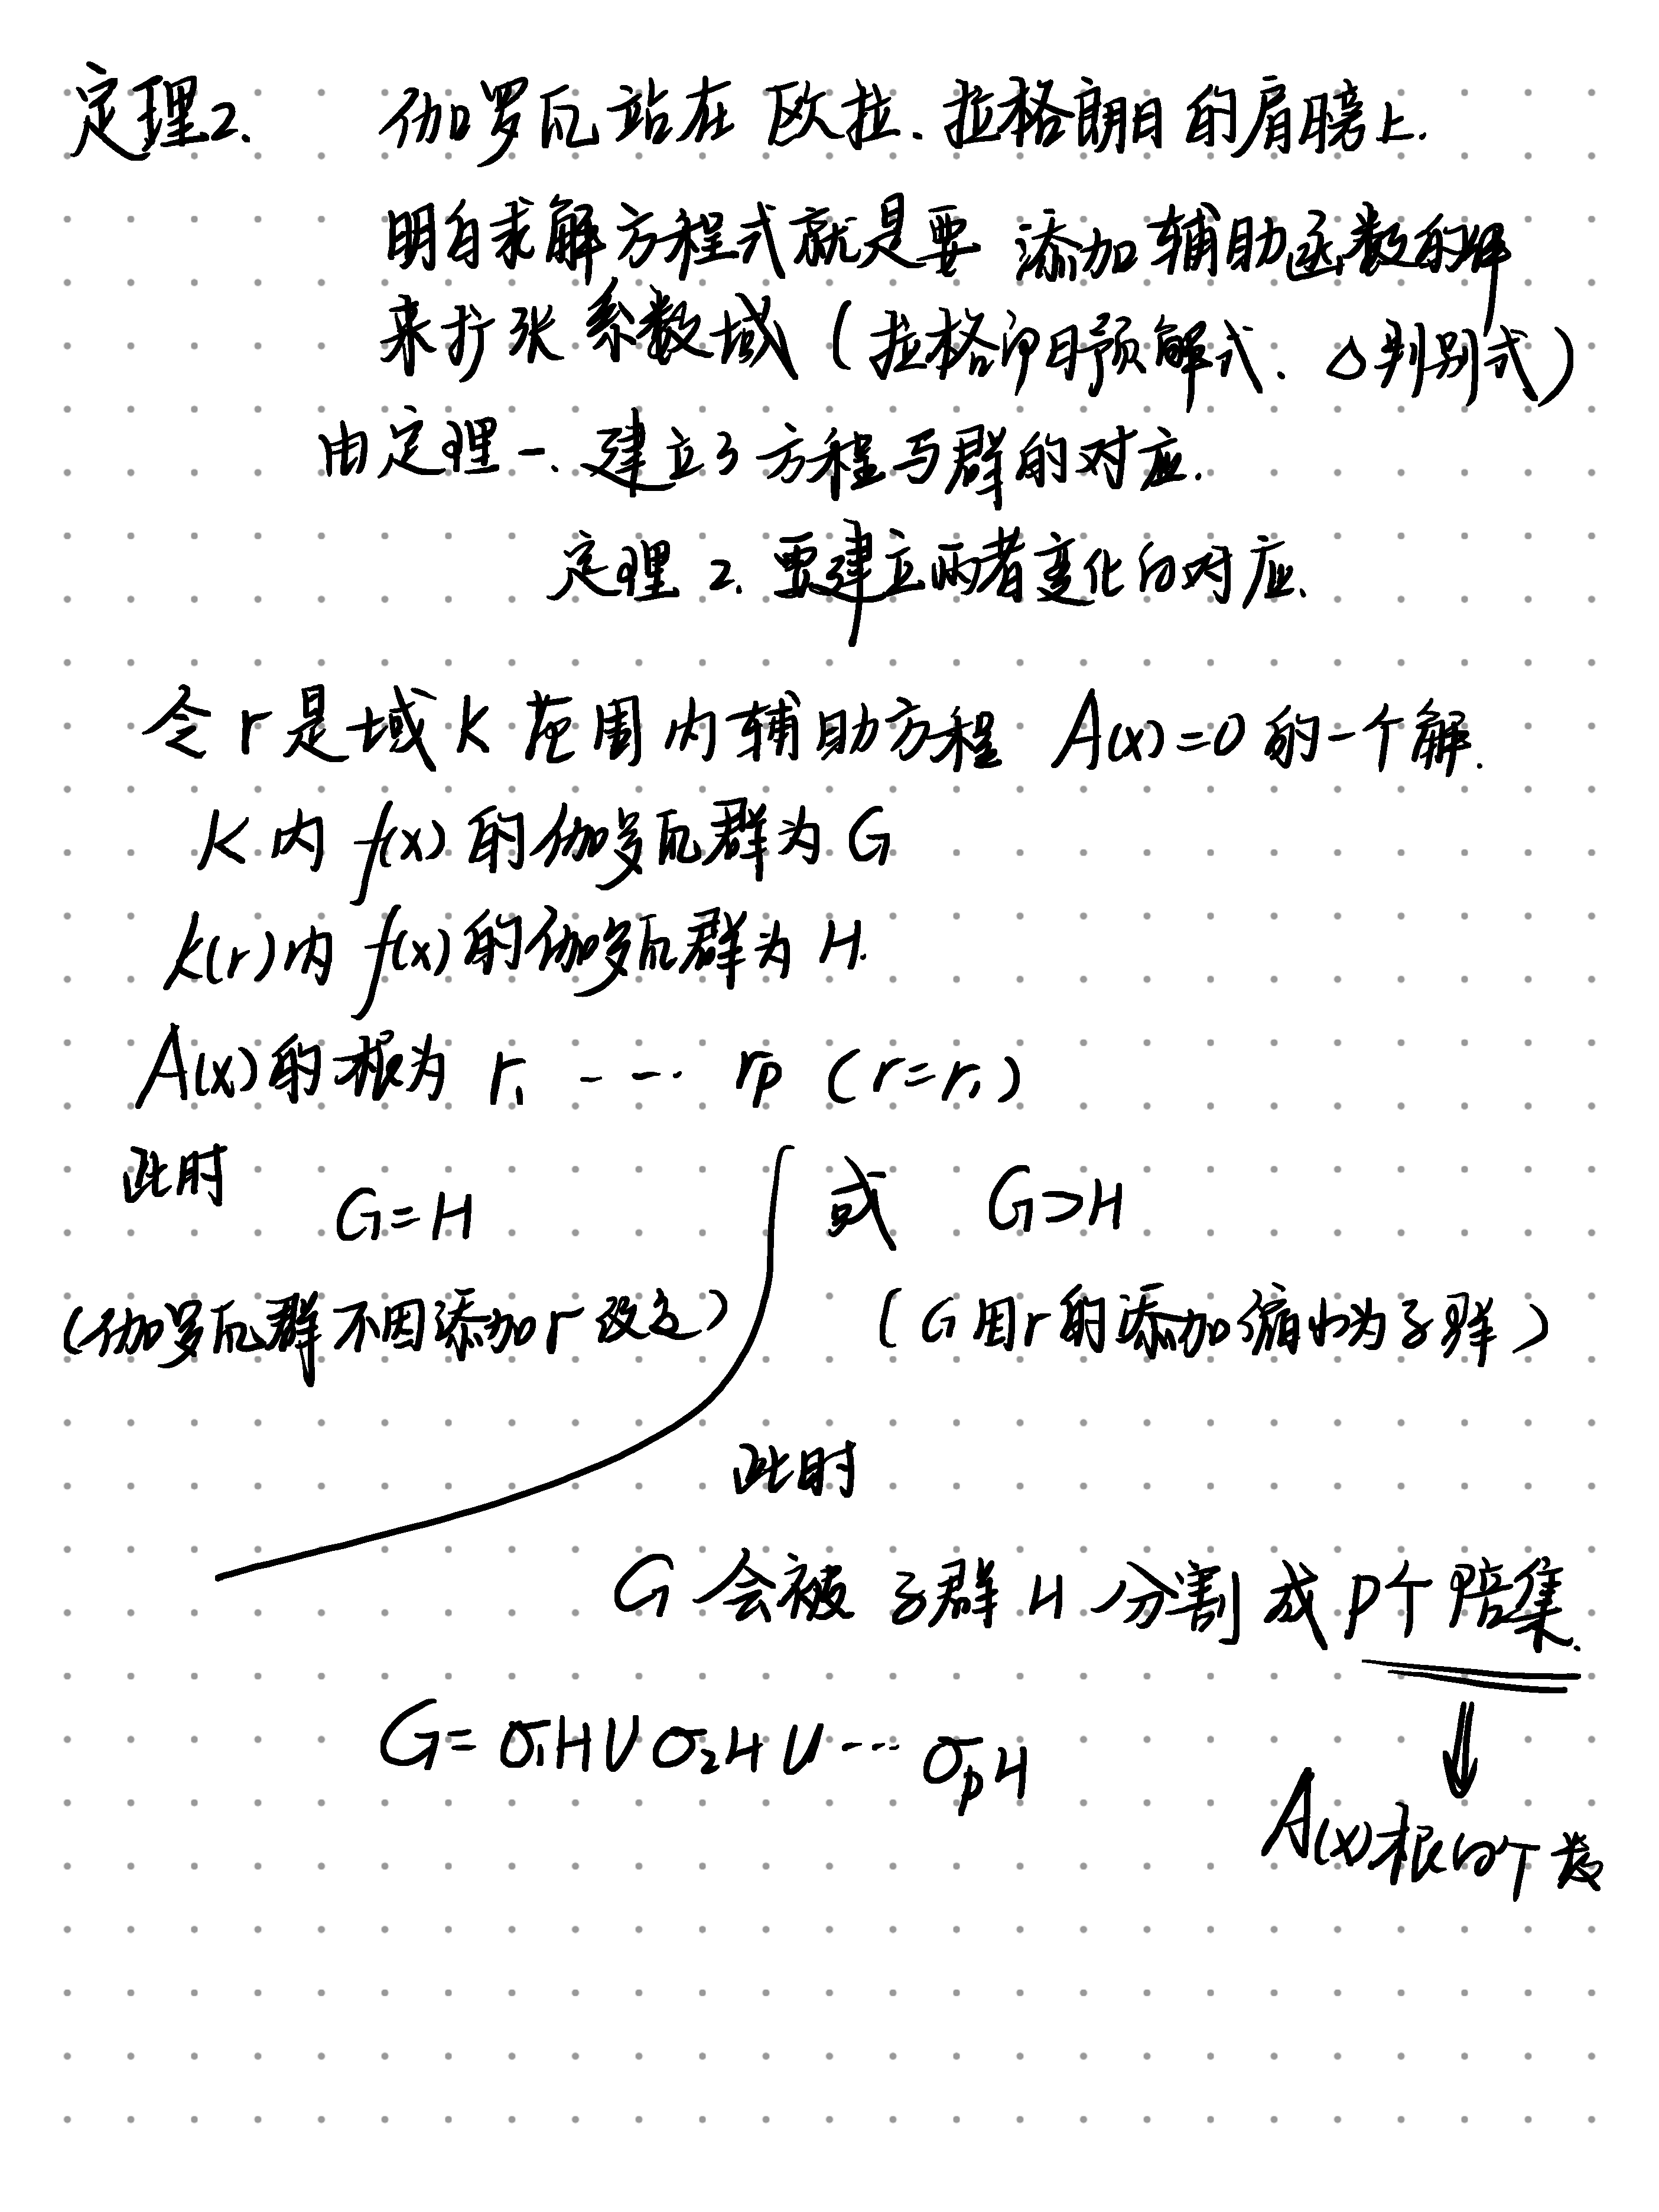 定理2. 伽罗瓦站在 欧拉、拉格朗日的肩膀上.
明白求解方程式就是要 添加辅助函数的解
来扩张系数域 (拉格朗日预解式、△判别式)
由定理一、建立了方程与群的对应.
定理 2. 要建立两者变化的对应.
令 r 是域 K 范围内辅助方程 A(x)=0 的一个解.
K 内 f(x) 的伽罗瓦群为 G
k(r)内 f(x)的伽罗瓦群为 H.
A(x)的根为 r₁ ---- rp (r=r₁)
此时 G=H 或 G⊃H
(伽罗瓦群不因添加r改变) (G因r的添加缩小为子群)
此时
G 会被 子群 H 分割成 P个陪集.
G= σ₁H∪σ₂H∪··· σpH
⇓
A(x)根的个数